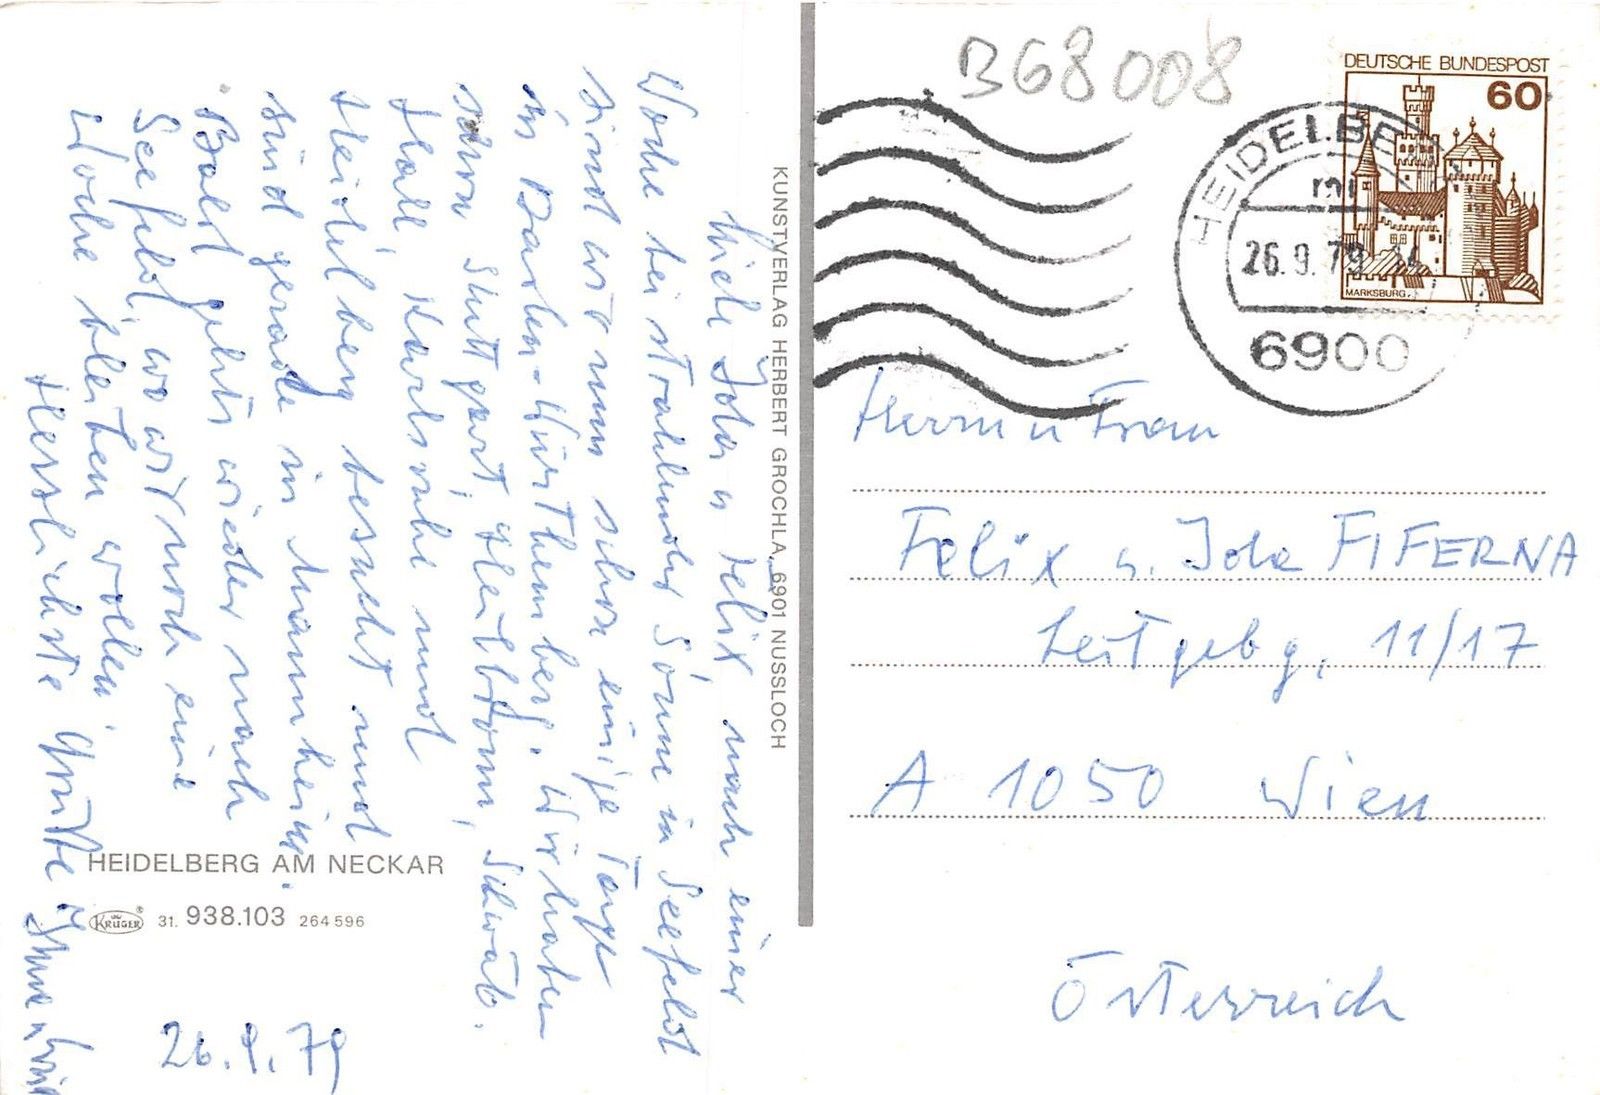 Liebe Ida u Felix, nach einer
Woche bei strahlender Sonne in Seefeld
sind wir nun schon einige Tage
in Baden-Würthemberg. Wir haben
schon Stuttgart, Heilbronn, Schwäb.
Hall, Karlsruhe und
Heidelberg besucht und
sind gerade in Mannheim.
Bald gehts wieder nach
Seefeld, wo wir noch eine
Woche bleiben wollen.
Herzlichste Grüße
26.9.79
HEIDELBERG AM NECKAR
KRÜGER® 31. 938.103 264 596
KUNSTVERLAG HERBERT GROCHLA, 6901 NUSSLOCH
B68008
DEUTSCHE BUNDESPOST
60
MARKSBURG
HEIDELBE
26.9.79
6900
Herrn u Frau
Felix u. Ida FIFERNA
Leitgebg. 11/17
A 1050 Wien
Österreich